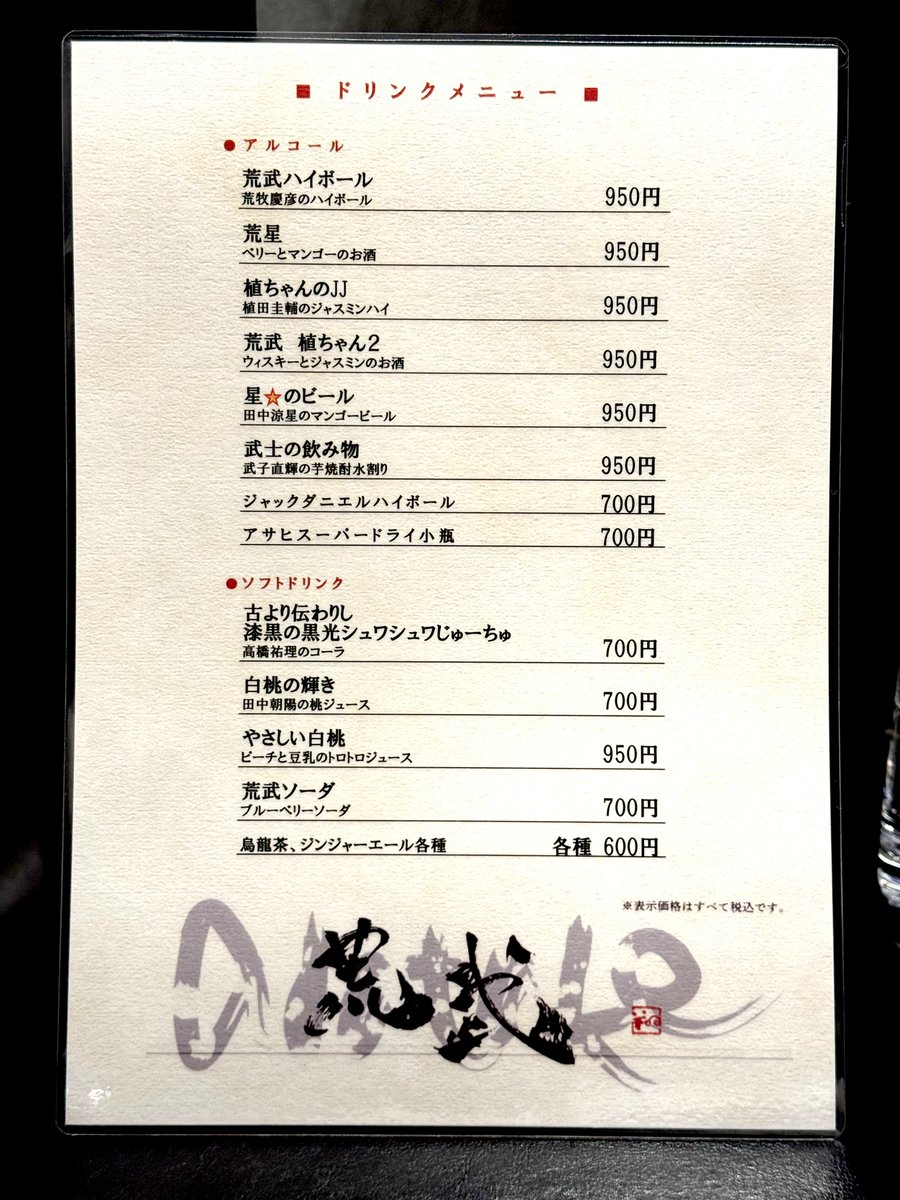 ■ ドリンクメニュー ■
●アルコール
荒武ハイボール
荒牧慶彦のハイボール 950円
荒星
ベリーとマンゴーのお酒 950円
植ちゃんのJJ
植田圭輔のジャスミンハイ 950円
荒武 植ちゃん2
ウィスキーとジャスミンのお酒 950円
星★のビール
田中涼星のマンゴービール 950円
武士の飲み物
武子直輝の芋焼酎水割り 950円
ジャックダニエルハイボール 700円
アサヒスーパードライ小瓶 700円
●ソフトドリンク
古より伝わりし
漆黒の黒光シュワシュワじゅーちゅ
高橋祐理のコーラ 700円
白桃の輝き
田中朝陽の桃ジュース 700円
やさしい白桃
ピーチと豆乳のトロトロジュース 950円
荒武ソーダ
ブルーベリーソーダ 700円
烏龍茶、ジンジャーエール各種 各種 600円
※表示価格はすべて税込です。
荒武